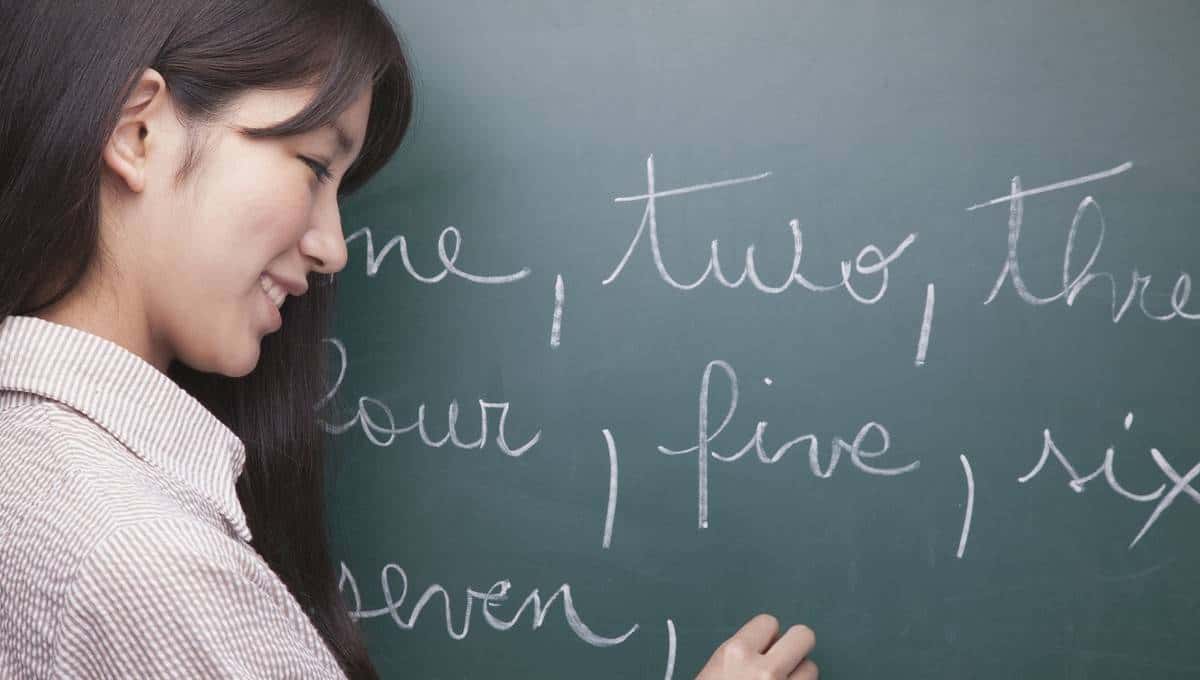 one, two, three
four, five, six
seven,